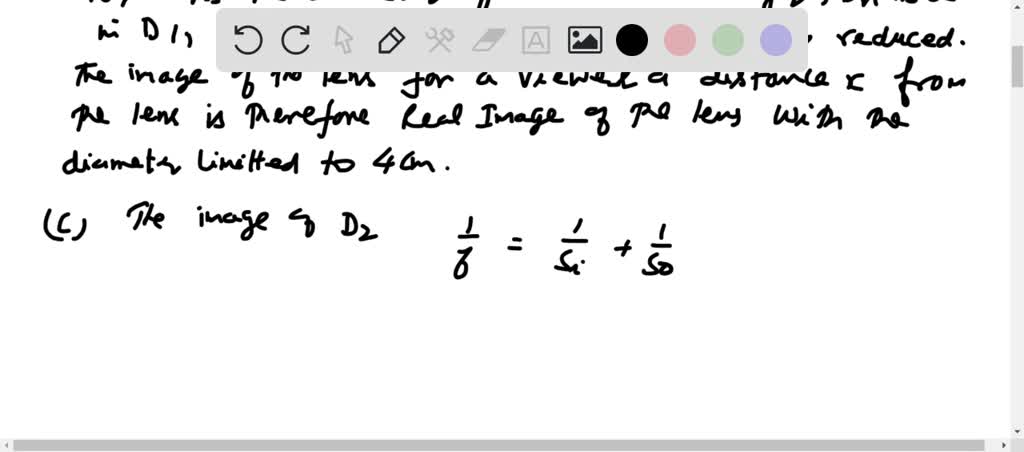 in D1, reduced.
The image of the lens for a viewer a distance x from
the lens is therefore Real Image of the lens with the
diameter limitted to 4cm.
(C) The image of D2 1/f = 1/Si + 1/So
A